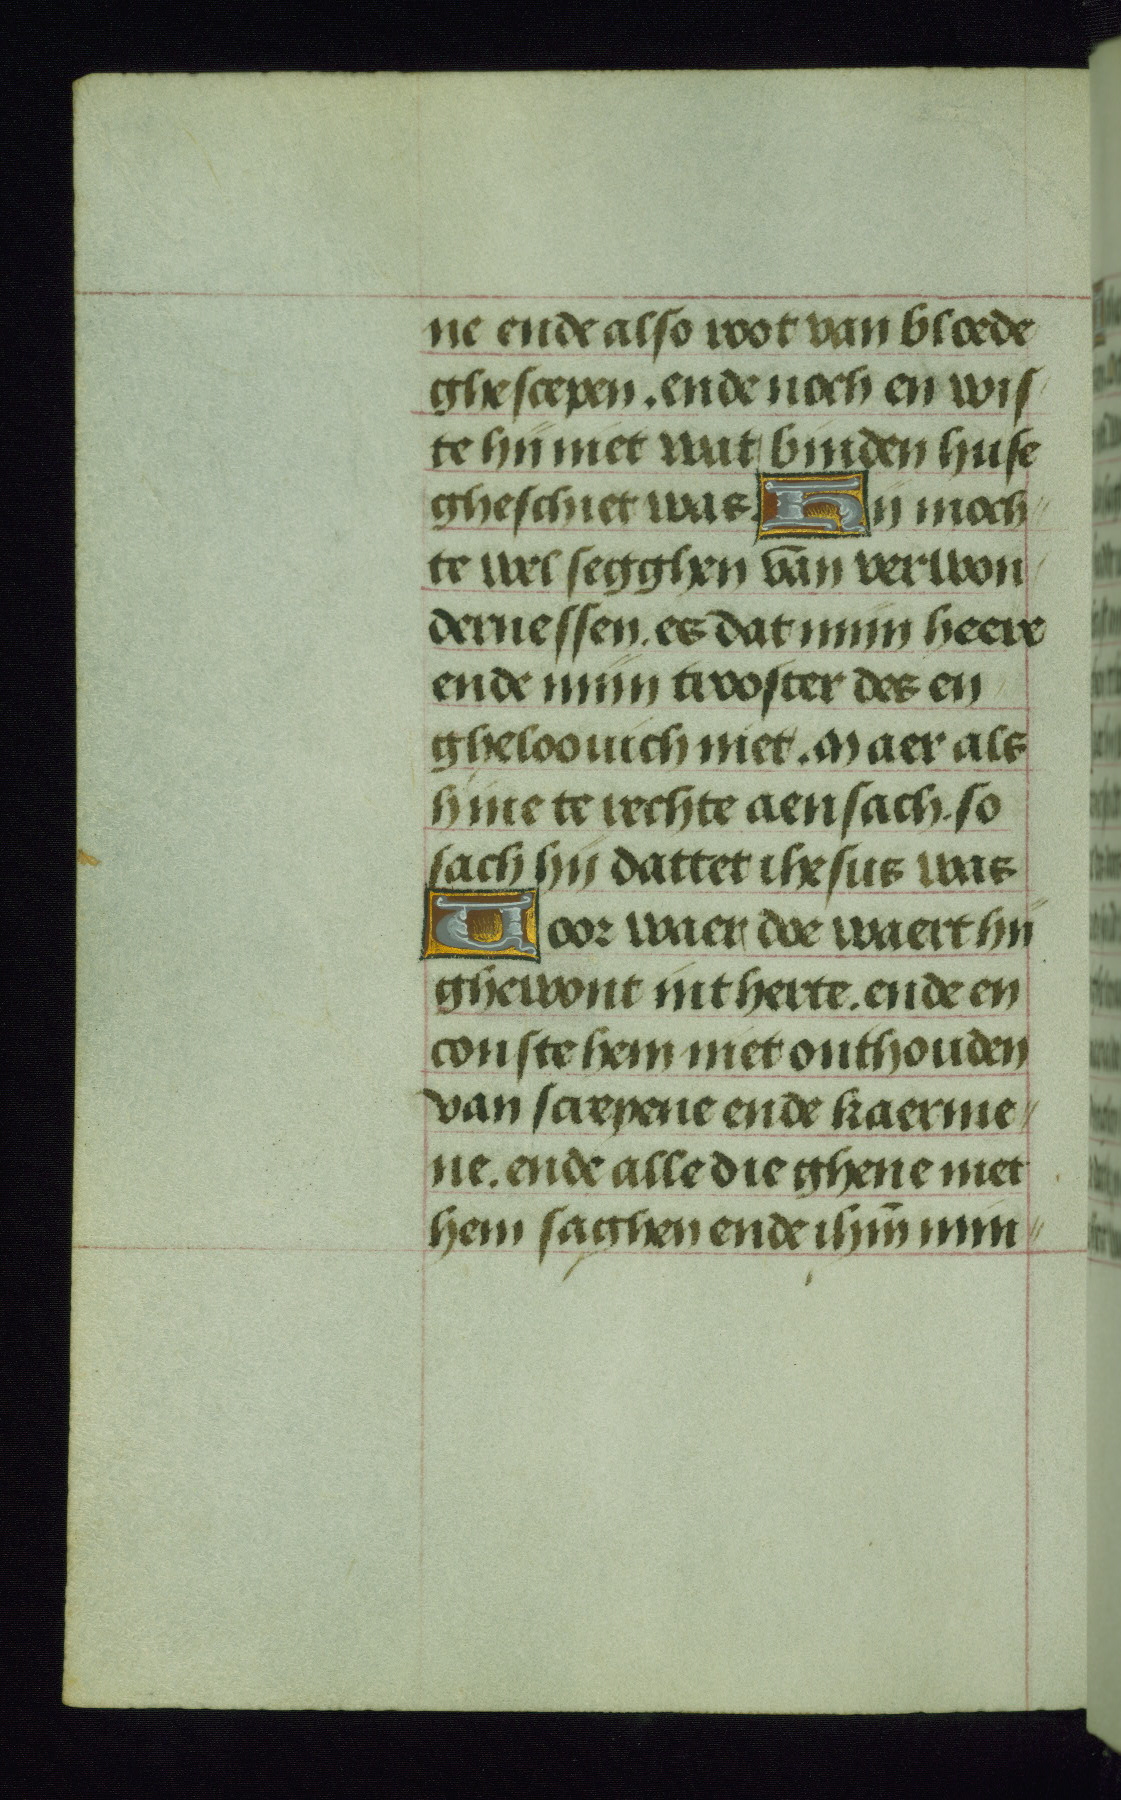 ne ende also root van bloede
ghescepen. ende noch en wis
te hij niet wat binden huse
ghesciet was. Hij moch
te wel segghen vā̄n verwon
dernessen. es dat mijn heere
ende mijn trooster des en
gheloouich niet. Maer als
hine te rechte aensach. so
sach hij dattet ihesus was
Voor waer doe waert hij
ghewont int herte. ende en
conste hem niet onthouden
van screyene ende kaerme
ne. ende alle die ghene met
hem saghen ende ihm̄ min